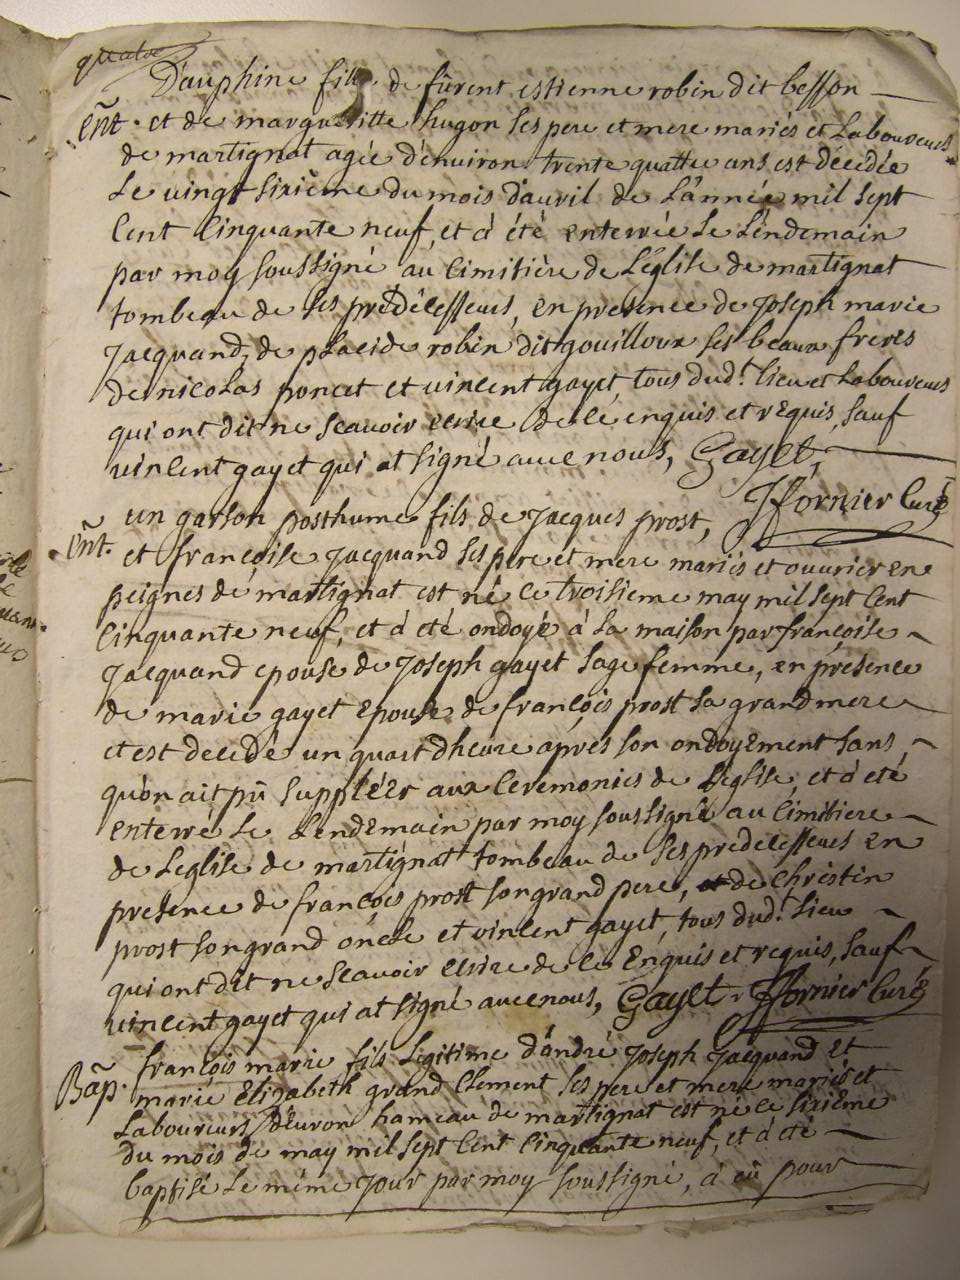 quatre
Dauphine fille de fûrent estienne robin dit besson
ent. et de margueritte hugon ses pere et mere mariés et Laboureurs
de martignat agée d'environ trente quattre ans est décédée
Le vingt sixième du mois d'auril de L'année mil sept
Cent Cinquante neuf, et á été enterrée Le Lendemain
par moy soussigné au Cimitière de L'église de martignat
tombeau de ses prédécesseurs, en presence de Joseph marie
Jacquand, de placide robin dit gouilloux ses beaux freres
de nicolas poncet et vincent gayet tous dud.t lieu et Laboureurs
qui ont dit ne scavoir ecrire de ce enquis et requis, sauf
vincent gayet qui at signé avec nous, Gayet,
Jffornier Curé
un garson posthume fils de Jacques prost,
ent. et françoise Jacquand ses pere et mere mariés et ouvrier en
peignes de martignat est né le troisieme may mil sept Cent
Cinquante neuf, et á été ondoyé á La maison par françoise
Jacquand epouse de Joseph gayet sage femme, en presence
de marie gayet Epouse de françois prost sa grand mere
et est decedé un quart d'heure aprés son ondoyement sans
qu'on ait pû suppléer aux Ceremonies de L'église, et á été
enterré Le Lendemain par moy soussigné au Cimitiere
de Leglise de martignat tombeau de ses prédécesseurs en
presence de françois prost son grand pere, et de Christin
prost son grand oncle et vincent gayet, tous dud.t Lieu
qui ont dit ne scavoir ecrire de ce Enquis et requis, sauf
vincent gayet qui at signé avec nous, Gayet. Jffornier Curé
françois marie fils Legitime d'andré Joseph Jacquand et
Bap. marie Elizabeth grand Clement ses pere et mere mariés et
Laboureurs d'Evron hameau de martignat est né le sixième
du mois de may mil sept Cent Cinquante neuf, et á été
baptisé Le même Jour par moy soussigné, á eû pour